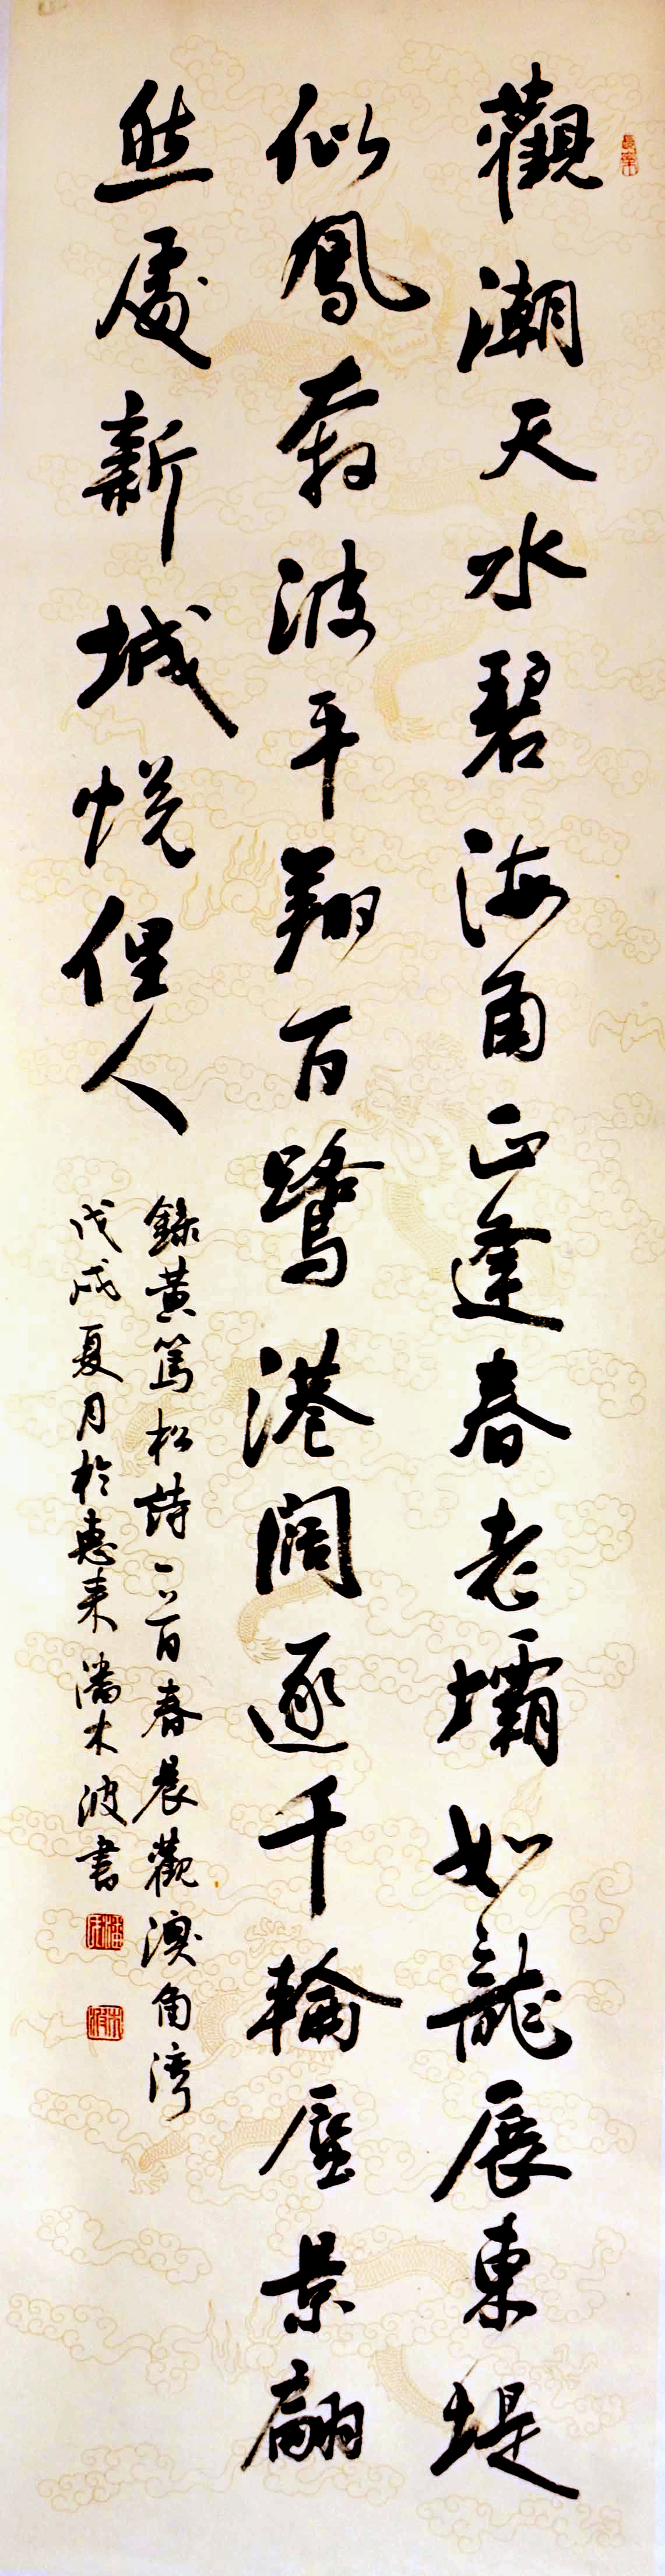 觀潮天水碧海角正逢春老壩如龍展東堤
似鳳敖波平翔百鷺港闊逐千輪蜃景翩
然處新城悅俚人
錄黃篤松詩一首春晨觀澳角灣
戊戌夏月於惠來潘木波書